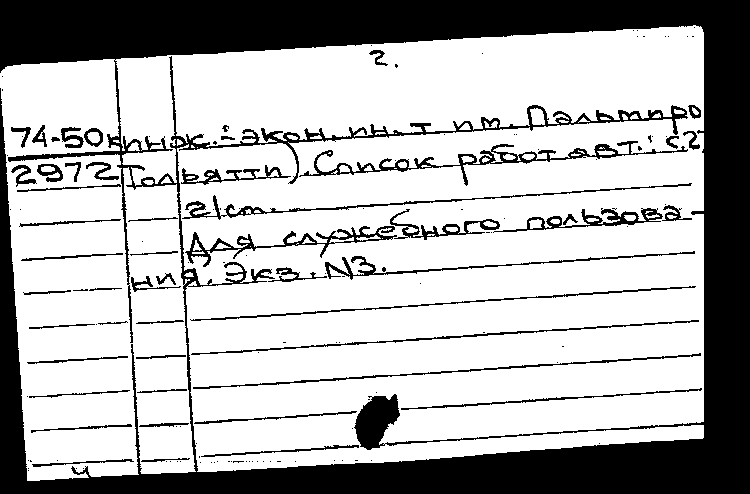 2.
74-50к инж.-экон. ин.-т им. Пальмиро
2972 Тольятти). Список работ авт.: с.27
2/ст.
Для служебного пользова-
ния. Экз. N3.
ч